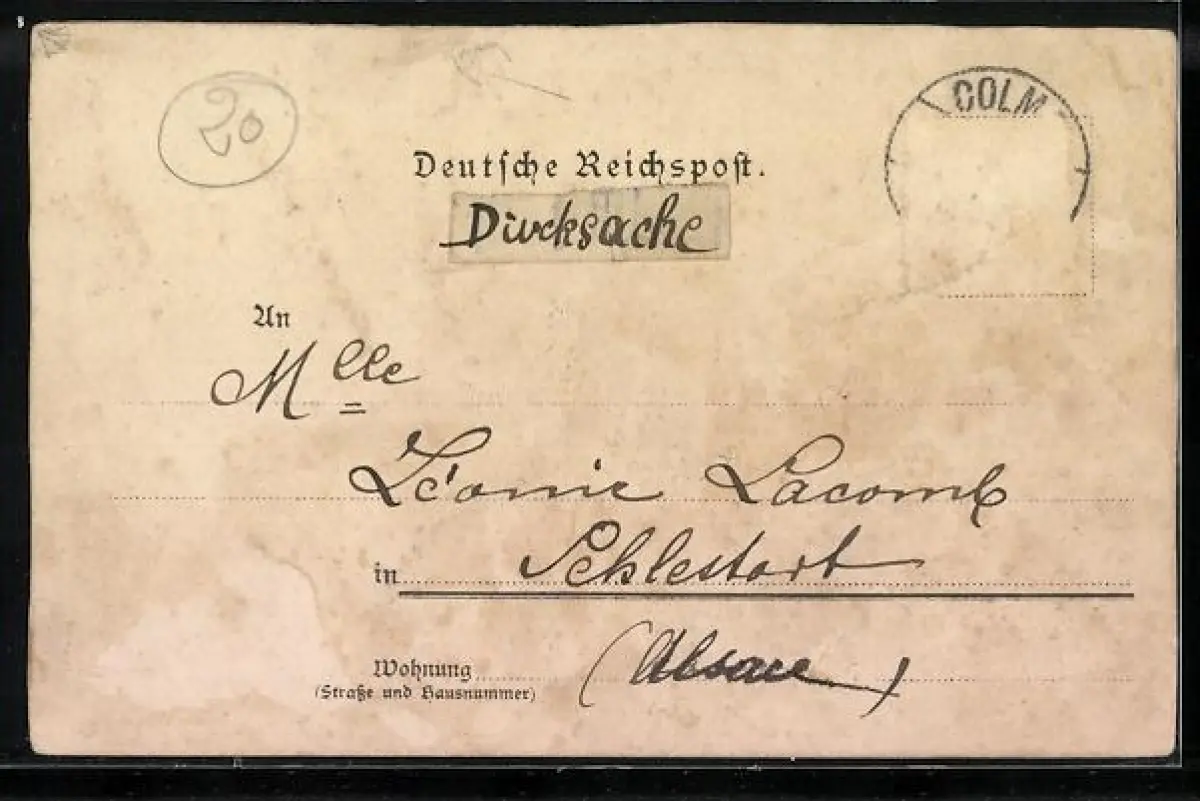 20
COLM
Deutsche Reichspost.
Drucksache
An
Mlle
Léonie Lacomb
in Schlestadt
(Alsace)
Wohnung
(Straße und Hausnummer)